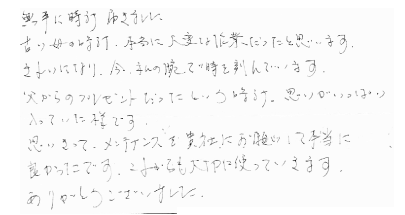 無事に時計届きました
古い母の時計、本当に大変な作業だったと思います。
きれいになり、今、私の腕で時を刻んでいます。
父からのプレゼントだったという時計。思いがいっぱい
入っていた様です。
思いきって、メンテナンスを貴社にお願いして本当に
良かったです。これからも大切に使っていきます。
ありがとうございました。